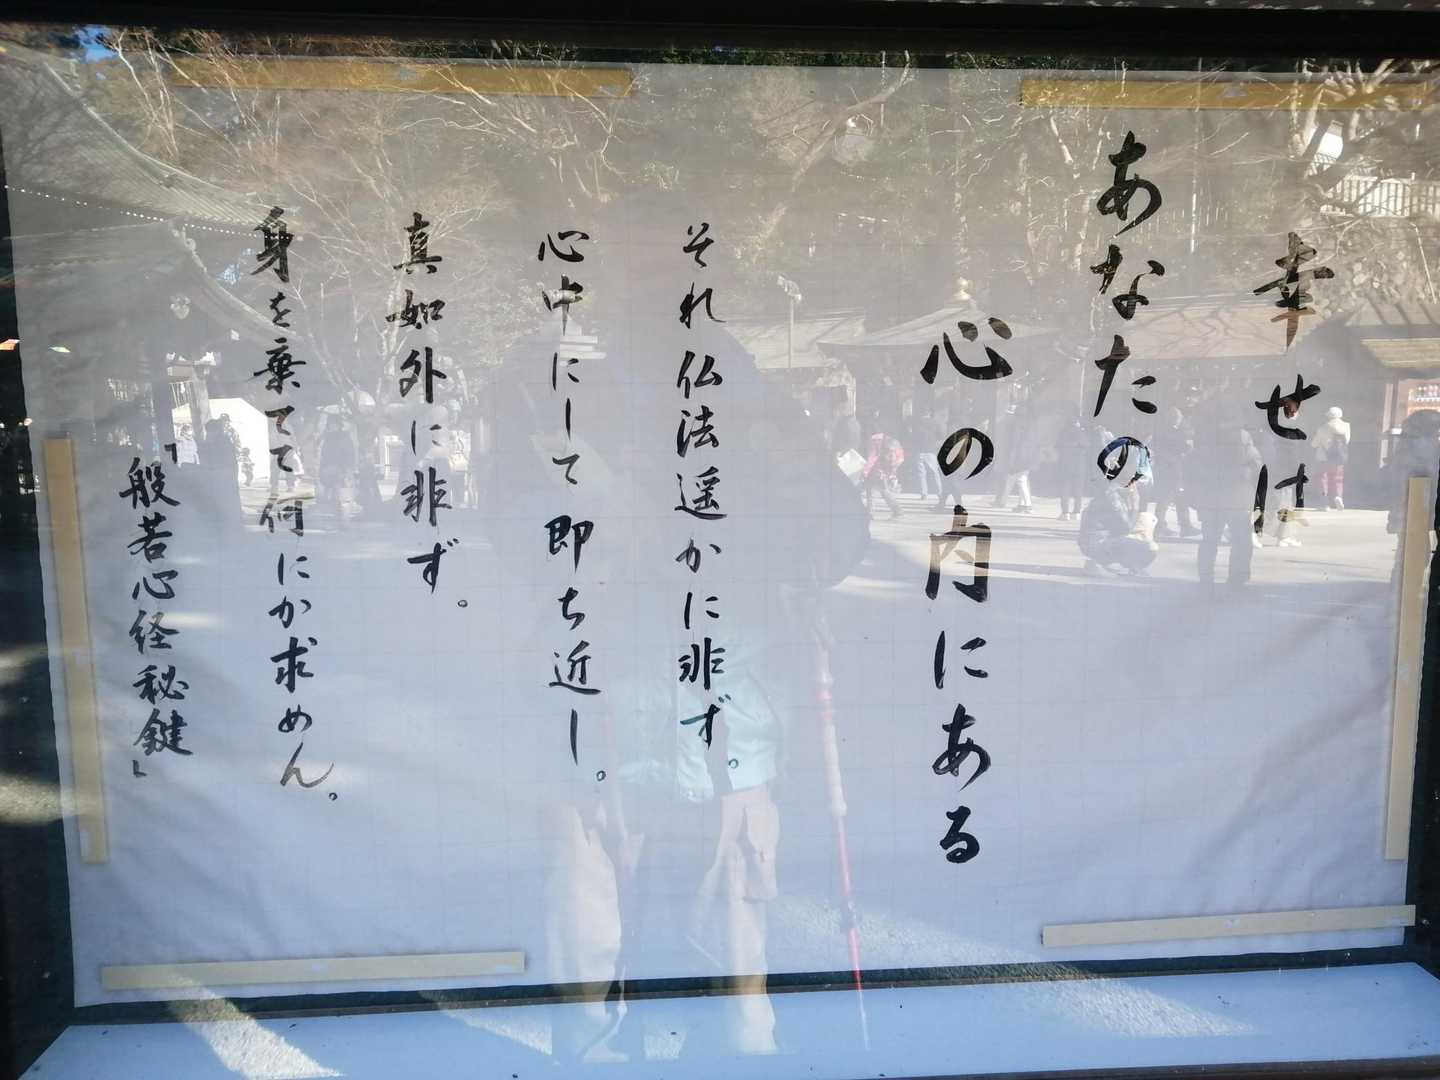 幸せは
あなたの
心の内にある
それ仏法遥かに非ず。
心中にして即ち近し。
真如外に非ず。
身を棄てて何にか求めん。
「般若心経秘鍵」